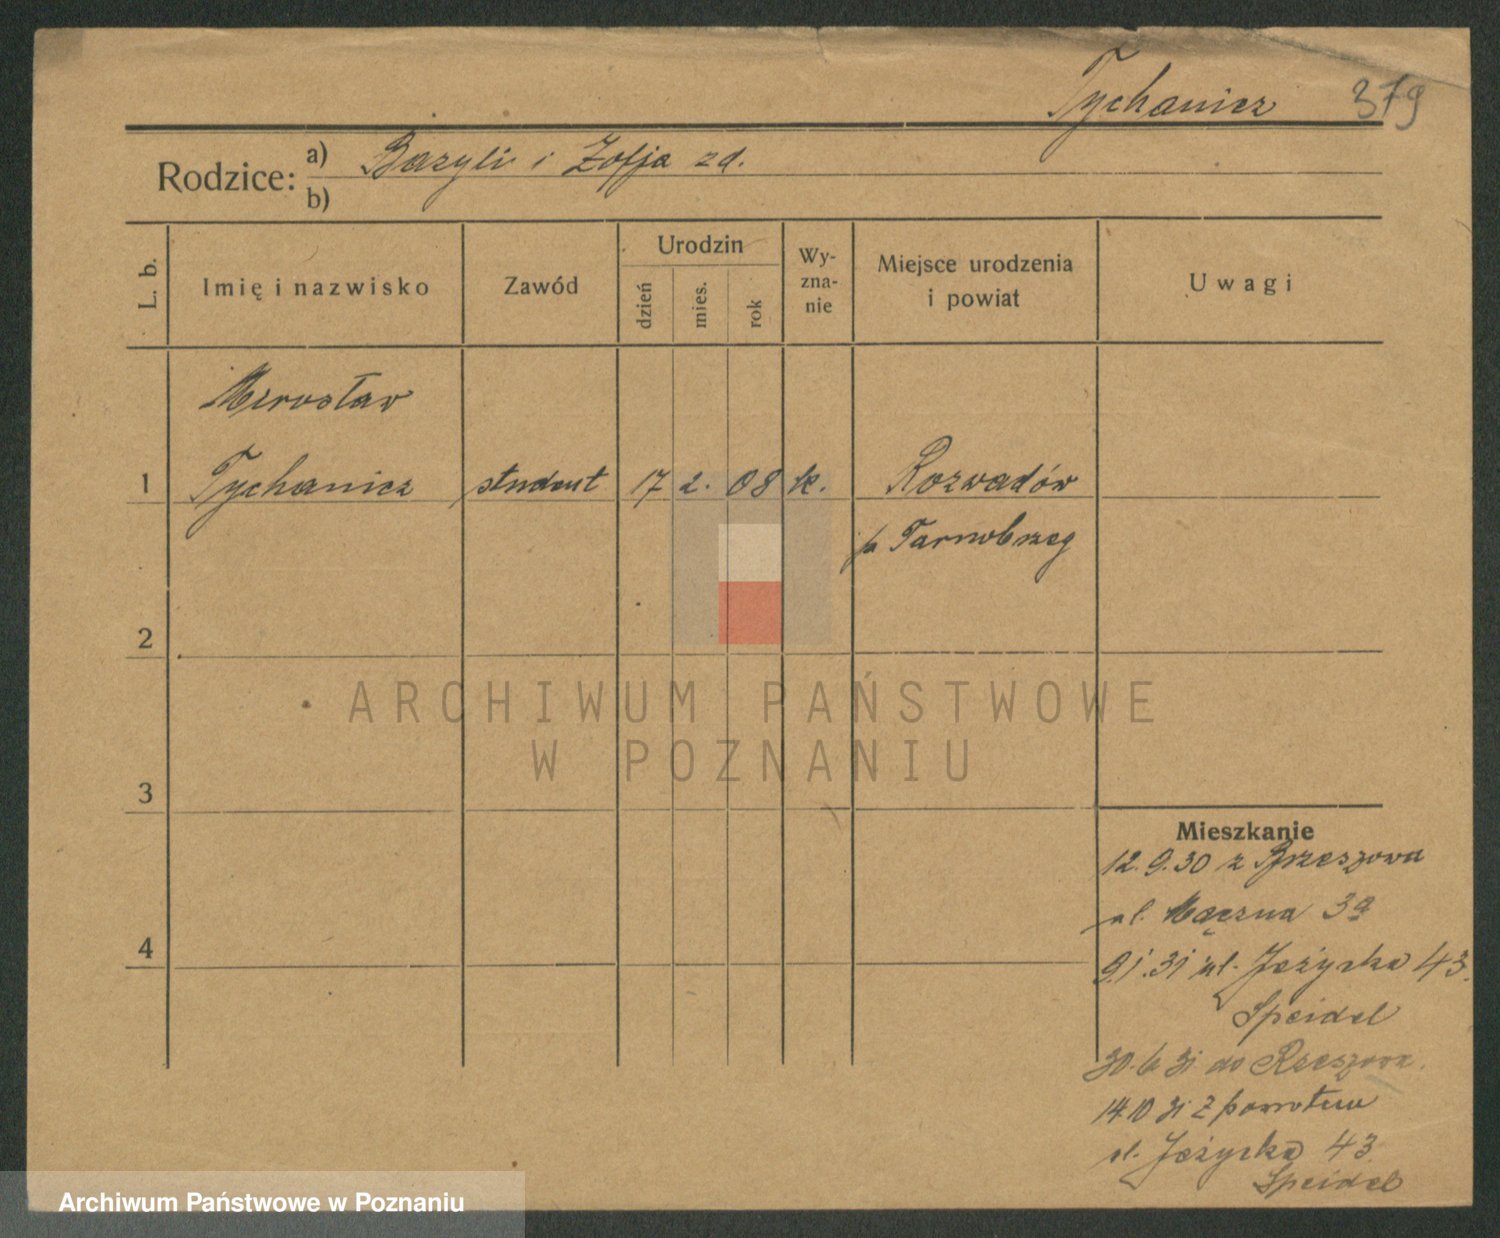 Tychanicz 379
Rodzice: a) Bazyli i Zofja zd.
b)
L. b. Imię i nazwisko Zawód Urodzin dzień mies. rok Wy-zna-nie Miejsce urodzenia i powiat Uwagi
Mirosław
1 Tychanicz student 17 2. 08 k. Rozwadów
p. Tarnobrzeg
2
3
4
Mieszkanie
12.9.30 z Rzeszowa
ul. Mączna 3a
9.1.31 ul. Jeżycka 43.
Speidel
30.6.31 do Rzeszowa.
14.10.31 z powrotem
ul. Jeżycka 43
Speidel
ARCHIWUM PAŃSTWOWE
W POZNANIU
Archiwum Państwowe w Poznaniu